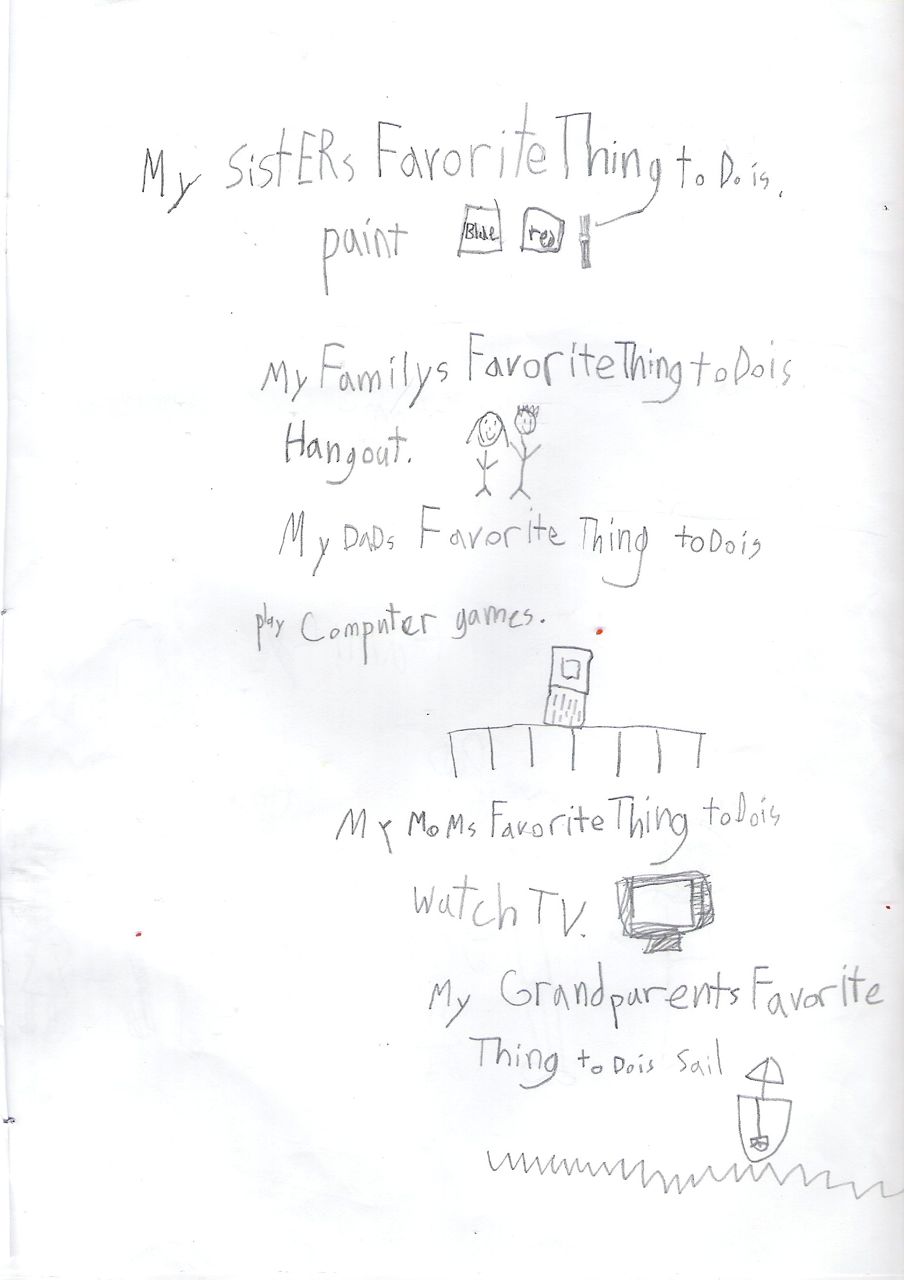 My SistERs Favorite Thing to Do is.
paint Blue red
My Familys Favorite Thing to Do is
Hangout.
My DaDs Favorite Thing to Do is
play Computer games.
My MoMs Favorite Thing to Do is
watch TV.
My Grandparents Favorite
Thing to Do is Sail